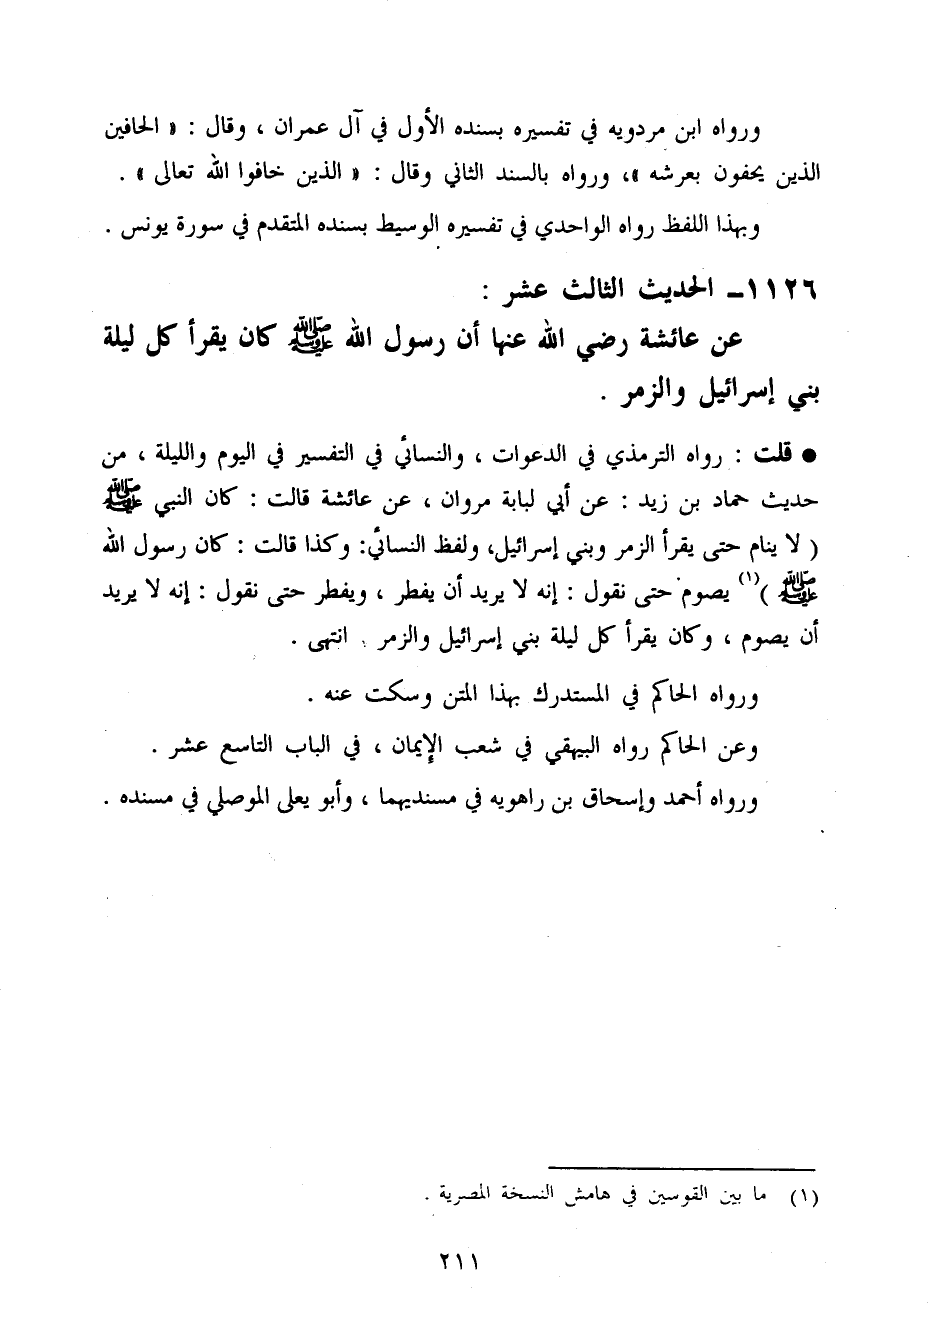 ورواه ابن مردويه في تفسيره بسنده الأول في آل عمران ، وقال : « الحافين
الذين يحفون بعرشه »، ورواه بالسند الثاني وقال : « الذين خافوا الله تعالى » .
وبهذا اللفظ رواه الواحدي في تفسيره الوسيط بسنده المتقدم في سورة يونس .
١١٢٦ـ الحديث الثالث عشر :
عن عائشة رضي الله عنها أن رسول الله ﷺ كان يقرأ كل ليلة
بني إسرائيل والزمر .
● قلت : رواه الترمذي في الدعوات ، والنسائي في التفسير في اليوم والليلة ، من
حديث حماد بن زيد : عن أبي لبابة مروان ، عن عائشة قالت : كان النبي ﷺ
( لا ينام حتى يقرأ الزمر وبني إسرائيل، ولفظ النسائي: وكذا قالت : كان رسول الله
ﷺ )(١) يصوم حتى نقول : إنه لا يريد أن يفطر ، ويفطر حتى نقول : إنه لا يريد
أن يصوم ، وكان يقرأ كل ليلة بني إسرائيل والزمر . انتهى .
ورواه الحاكم في المستدرك بهذا المتن وسكت عنه .
وعن الحاكم رواه البيهقي في شعب الإيمان ، في الباب التاسع عشر .
ورواه أحمد وإسحاق بن راهويه في مسنديهما ، وأبو يعلى الموصلي في مسنده .
(١) ما بين القوسين في هامش النسخة المصرية .
٢١١